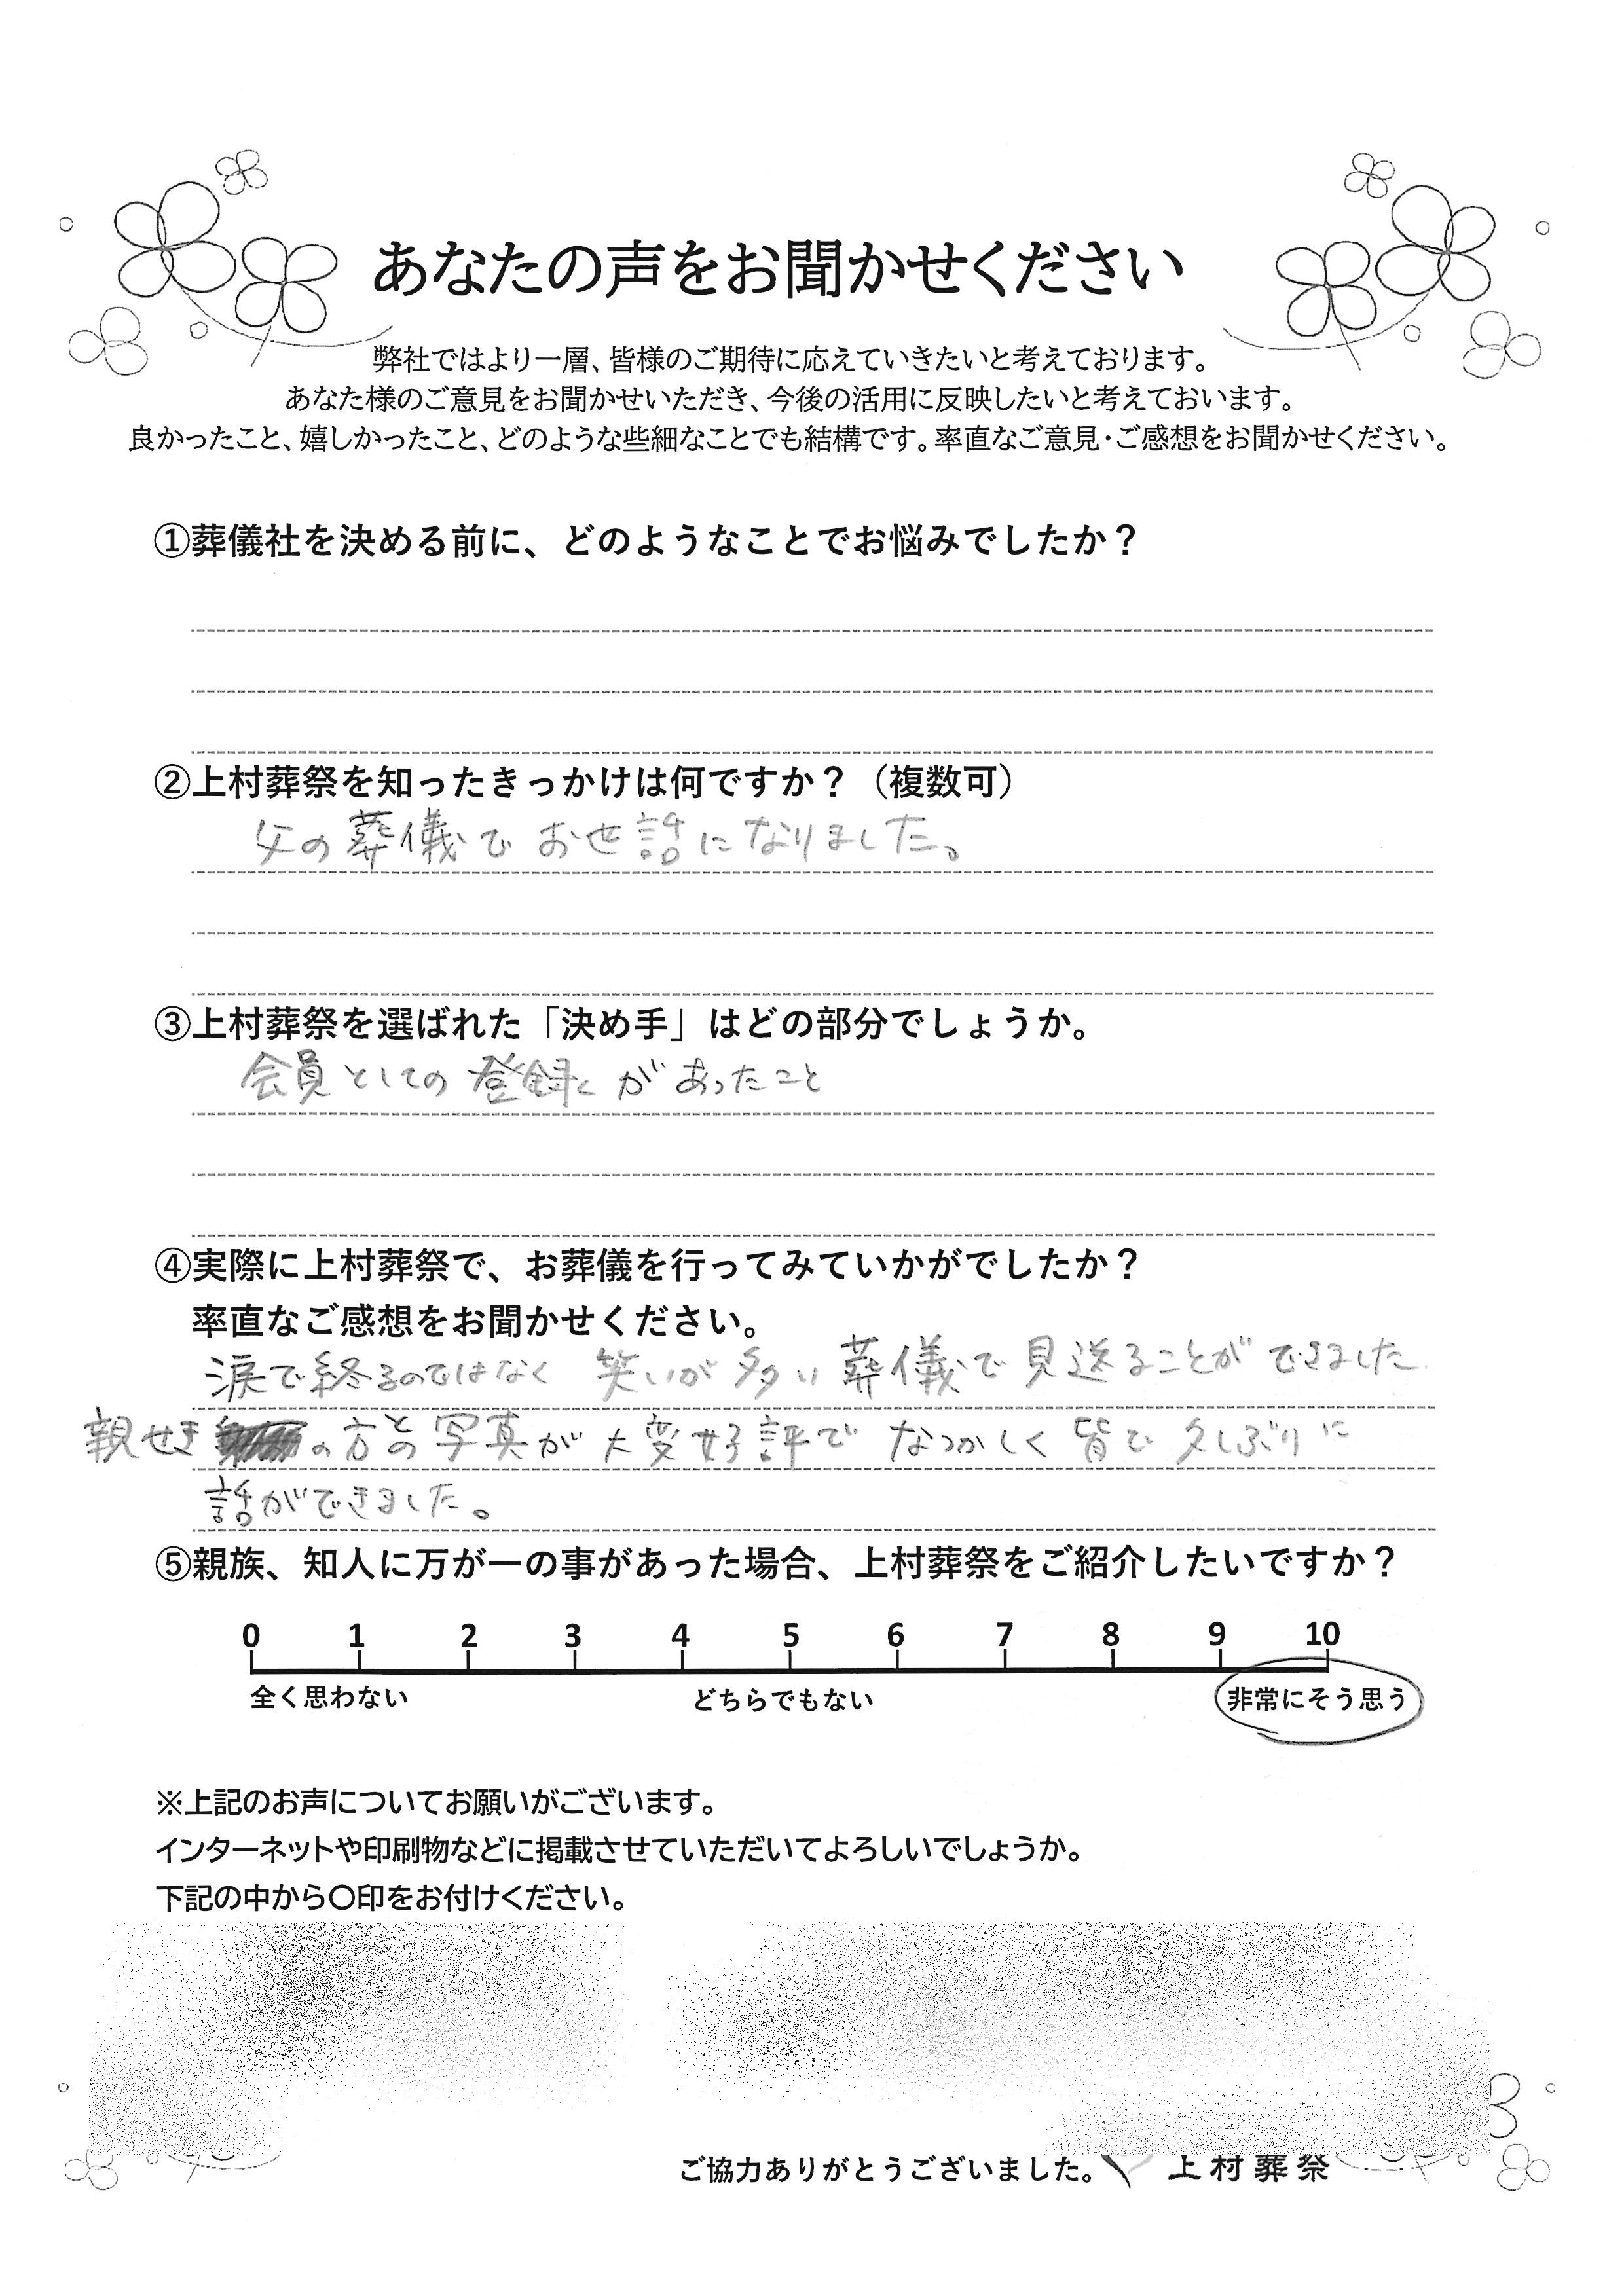 あなたの声をお聞かせください
弊社ではより一層、皆様のご期待に応えていきたいと考えております。
あなた様のご意見をお聞かせいただき、今後の活用に反映したいと考えておいます。
良かったこと、嬉しかったこと、どのような些細なことでも結構です。率直なご意見・ご感想をお聞かせください。
①葬儀社を決める前に、どのようなことでお悩みでしたか？
②上村葬祭を知ったきっかけは何ですか？（複数可）
父の葬儀でお世話になりました。
③上村葬祭を選ばれた「決め手」はどの部分でしょうか。
会員としての登録があったこと
④実際に上村葬祭で、お葬儀を行ってみていかがでしたか？
率直なご感想をお聞かせください。
涙で終るのではなく 笑いが多い葬儀で見送ることができました
親せきの方との写真が大変好評で なつかしく皆で久しぶりに
話ができました。
⑤親族、知人に万が一の事があった場合、上村葬祭をご紹介したいですか？
0 1 2 3 4 5 6 7 8 9 10
全く思わない どちらでもない 非常にそう思う
※上記のお声についてお願いがございます。
インターネットや印刷物などに掲載させていただいてよろしいでしょうか。
下記の中から〇印をお付けください。
ご協力ありがとうございました。 上村葬祭